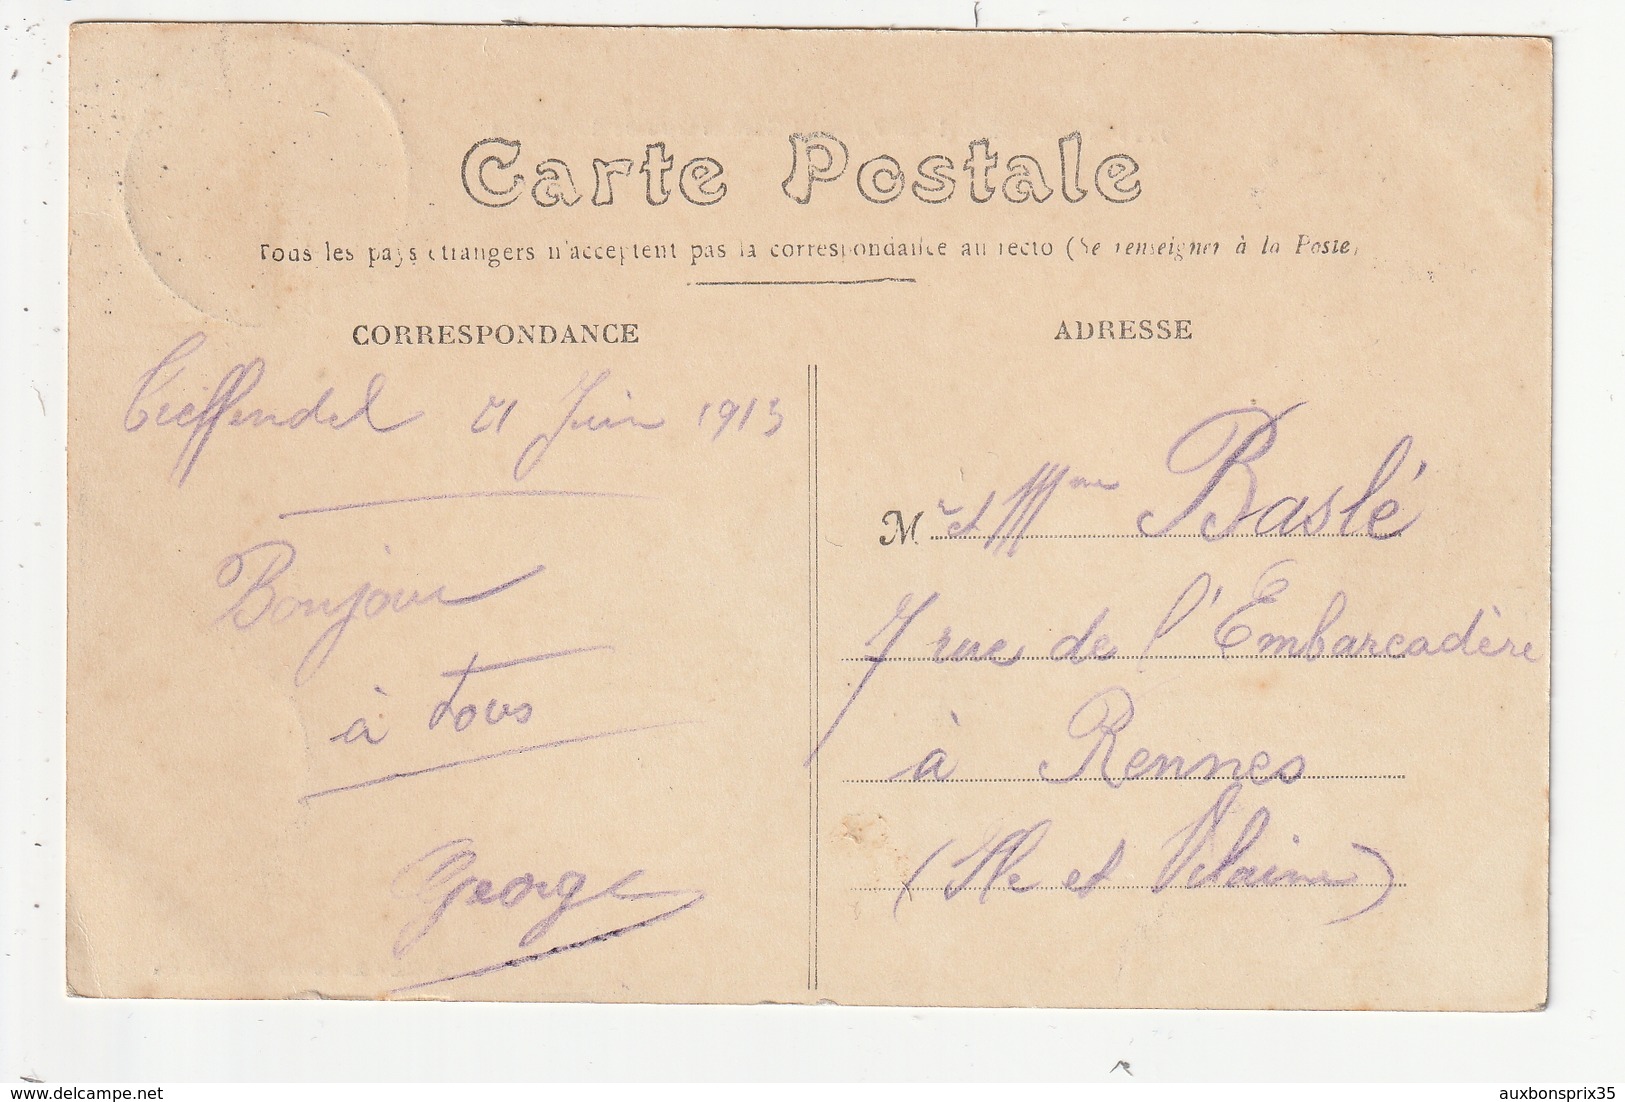 Carte Postale
Tous les pays étrangers n'acceptent pas la correspondance au recto (Se renseigner à la Poste)
CORRESPONDANCE
Treffendel 21 Juin 1913
Bonjour
à tous
George
ADRESSE
Mr et Mme Baslé
7 rue de l'Embarcadère
à Rennes
(Ille et Vilaine)
www.delcampe.net
auxbonsprix35